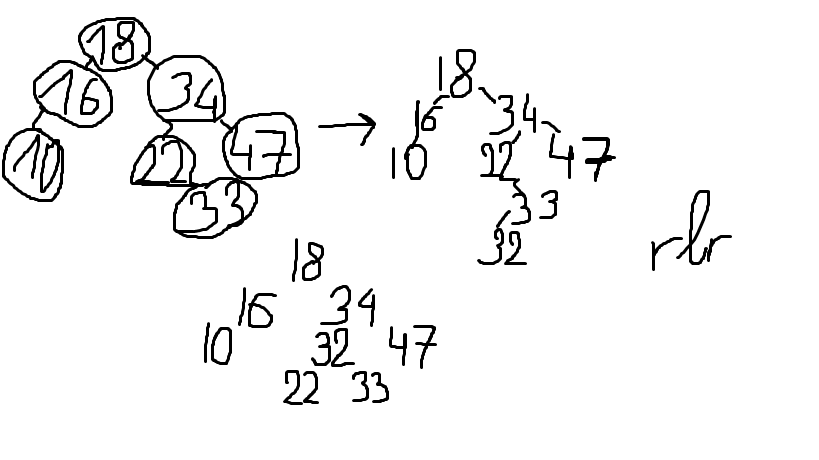 18
16 34
10 22 47
33
18
16 34
10 22 47
33
32
rlr
18
16 34
10 32 47
22 33